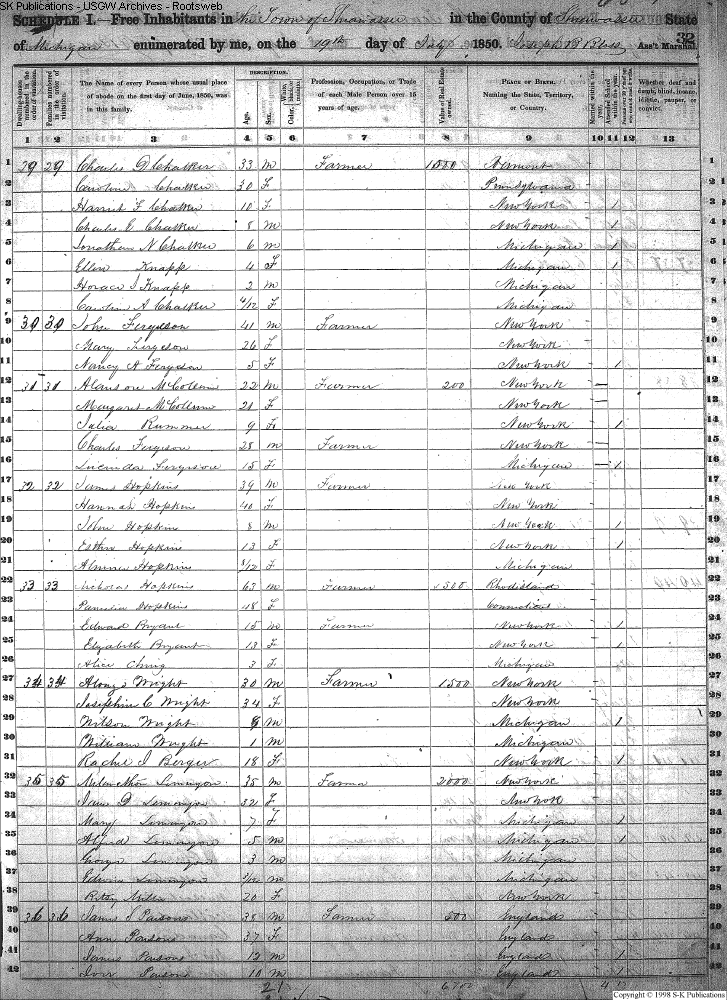 SK Publications - USGW Archives - Rootsweb
SCHEDULE I.—Free Inhabitants in the Town of Shiawassee in the County of Shiawassee State
of Michigan enumerated by me, on the 19th day of July 1850. Joseph B Ass't Marshal. 32
Dwelling-houses numbered in the order of visitation.
Families numbered in the order of visitation.
The Name of every Person whose usual place of abode on the first day of June, 1850, was in this family.
DESCRIPTION.
Age.
Sex.
Color, White, black, or mulatto.
Profession, Occupation, or Trade of each Male Person over 15 years of age.
Value of Real Estate owned.
PLACE OF BIRTH. Naming the State, Territory, or Country.
Married within the year.
Attended School within the year.
Whether deaf and dumb, blind, insane, idiotic, pauper, or convict.
1 2 3 4 5 6 7 8 9 10 11 12 13
1 29 29 Charles D Chalker 33 M Farmer 1000 Vermont 1
2 Caroline Chalker 30 F Pennsylvania 2
3 Harriet Chalker 10 F New York 1 3
4 Charles E Chalker 8 M New York 1 4
5 Jonathan N Chalker 6 M Michigan 1 5
6 Ellen Knapp 4 F Michigan 1 6
7 Horace Knapp 2 M Michigan 7
8 Caroline A Chalker F Michigan 8
9 30 30 John Ferguson 41 M Farmer New York 9
10 Mary Ferguson 26 F New York 10
11 Nancy A Ferguson 5 F New York 1 11
12 31 31 Alanson McCollum 22 M Farmer 200 New York 12
13 Margaret McCollum 21 F New York 13
14 Julia Rummer 9 F New York 1 14
15 Charles Ferguson 25 M Farmer New York 15
16 Lucinda Ferguson 15 F Michigan 1 16
17 32 32 James Hopkins 39 M Farmer New York 17
18 Hannah Hopkins 40 F New York 18
19 John Hopkins 8 M New York 1 19
20 Esther Hopkins 13 F New York 1 20
21 Hopkins F Michigan 21
22 33 33 Nicholas Hopkins 67 M Farmer 500 Rhode Island 22
23 Hopkins 48 F Connecticut 23
24 Edward Bryant 15 M Farmer New York 1 24
25 Elizabeth Bryant 13 F New York 1 25
26 Alice 3 F Michigan 26
27 34 34 Alonzo Wright 30 M Farmer 1500 New York 27
28 Josephine C Wright 34 F New York 28
29 Wilson Wright M Michigan 1 29
30 William Wright 1 M Michigan 30
31 Rachel J Berger 18 F New York 1 31
32 35 35 35 M Farmer 2000 New York 32
33 Jane D 32 F New York 33
34 Mary 7 F Michigan 1 34
35 Alfred 5 M Michigan 1 35
36 George 3 M Michigan 36
37 Edwin M Michigan 37
38 20 F New York 38
39 36 36 James S Parsons 38 M Farmer 500 England 39
40 Ann Parsons 37 F England 40
41 James Parsons 12 M England 1 41
42 Parsons 10 M England 1 42
21
Copyright © 1998 S-K Publications